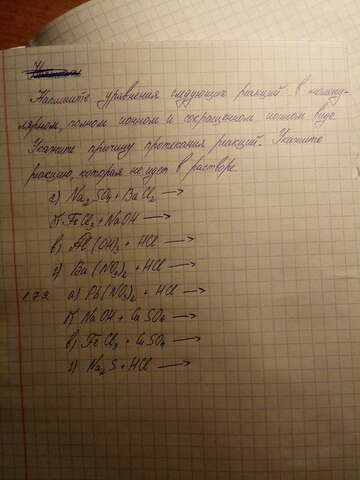 Напишите уравнения следующих реакций в молеку-
лярном, полном ионном и сокращенном ионном виде.
Укажите причину протекания реакций. Укажите
реакцию, которая не идет в растворе.
а) Na₂SO₄ + BaCl₂ →
б) FeCl₃ + NaOH →
в) Al(OH)₃ + HCl →
г) Ba(NO₃)₂ + HCl →
а) Pb(NO₃)₂ + HCl →
б) NaOH + CuSO₄ →
в) FeCl₃ + CuSO₄ →
г) Na₂S + HCl →